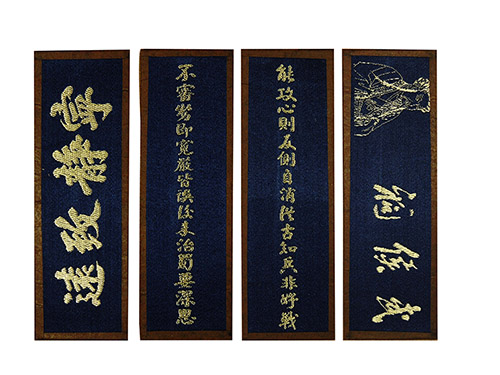 武侯祠
能攻心則反側自消從古知兵非好戰
不審勢即寬嚴皆誤後來治蜀要深思
寧静致遠